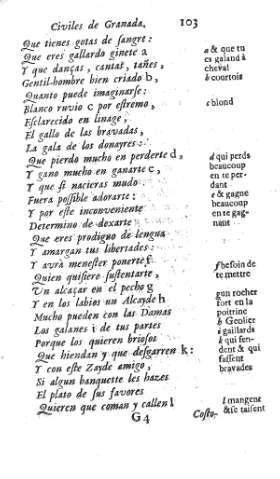 Civiles de Granada. 103
Que tienes gotas de sangre:
Que eres gallardo ginete a
Y que danças, cantat, tañes,
Gentil-hombre bien criado b,
Quanto puede imaginarse:
Blanco ruvio c por estremo,
Esclarecido en linage,
El gallo de las bravadas,
La gala de los donayres:
Que pierdo mucho en perderte d,
Y gano mucho en ganarte e,
Y que si nacieras mudo
Fuera possible adorarte:
Y por este inconveniente
Determino de dexarte
Que eres prodigo de lengua
Y amargan tus libertades:
Y avrà menester ponerte f
Quien quisiere sustentarte,
Un alcaçar en el pecho g
Y en los labios un Alcayde h
Mucho pueden con las Damas
Los galanes i de tus partes
Porque los quieren briosos
Que hiendan y que desgarren k:
Y con este Zayde amigo,
Si algun banquette les hazes
El plato de sus favores
Quieren que coman y callen l
G4 Costo-
a & que tu
es galand à
cheval
b courtois
c blond
d qui perds
beaucoup
en te per-
dant
e & gagne
beaucoup
en te gag-
nant
f besoin de
te mettre
g un rocher
fort en la
poitrine
h Geolier
i gaillards
k qui fen-
dent & qui
fussent
bravades
l mangent
& se taisent